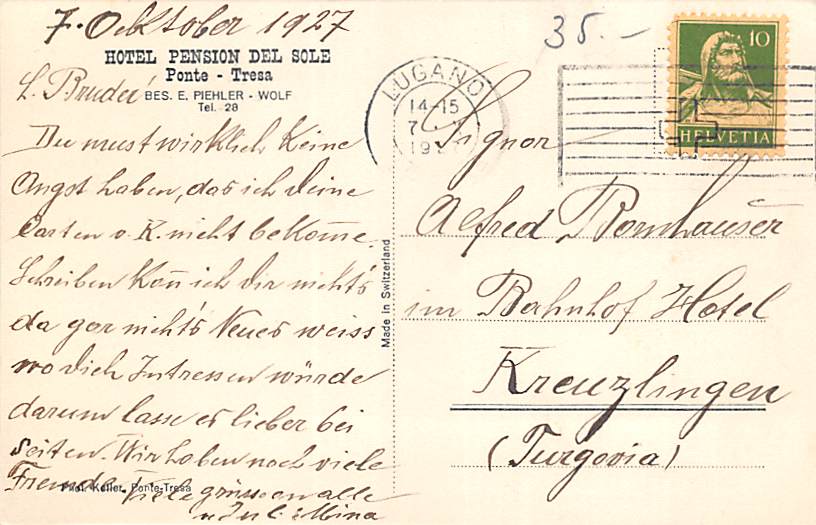 7. Oktober 1927
HOTEL PENSION DEL SOLE
Ponte - Tresa
BES. E. PIEHLER - WOLF
Tel. 28
L. Bruder
Du must wirklich Keine
Angst haben, das ich deine
Carten v. K. nicht bekom̄e.
Schreiben Kan̄ ich dir nicht's
da gar nicht's Neues weiss
wo dich Intressen würde
darum lasse es lieber bei
seiten. Wir haben noch viele
Fremde. Viele grüsse an alle
Phot. Keller, Ponte-Tresa
Mina
Made in Switzerland
35.-
LUGANO
14-15
7
10
HELVETIA
Signor
Alfred Bornhauser
im Bahnhof Hotel
Kreuzlingen
(Turgovia)